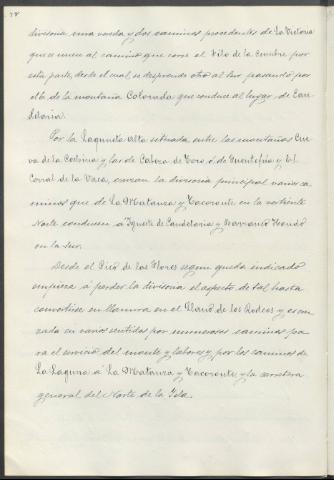 divisoria una vereda y dos caminos procedentes de La Victoria
que se unen al camino que corre el Filo de la Cumbre por
esta parte, desde el cual se desprende otro al Sur pasando por
el O. de la montaña Colorada que conduce al lugar de Can-
delaria.
Por la Laguneta Alta situada entre las montañas Cue-
va de la Colonia y las de Cabeza de Toro ó de Guantefría y el
Corral de la Vaca, cruzan la divisoria principal varios ca-
minos que de La Matanza y Tacoronte en la vertiente
Norte conducen á Igueste de Candelaria y Barranco Hondo
en la Sur.
Desde el Pico de las Flores segun queda indicado
empieza á perder la divisoria el aspecto de tal hasta
convertirse en llanura en el Llano de los Rodeos y es cru-
zada en varios sentidos por numerosos caminos pa-
ra el servicio del monte y labores y por los caminos de
La Laguna á La Matanza y Tacoronte y la carretera
general del Norte de la Isla.